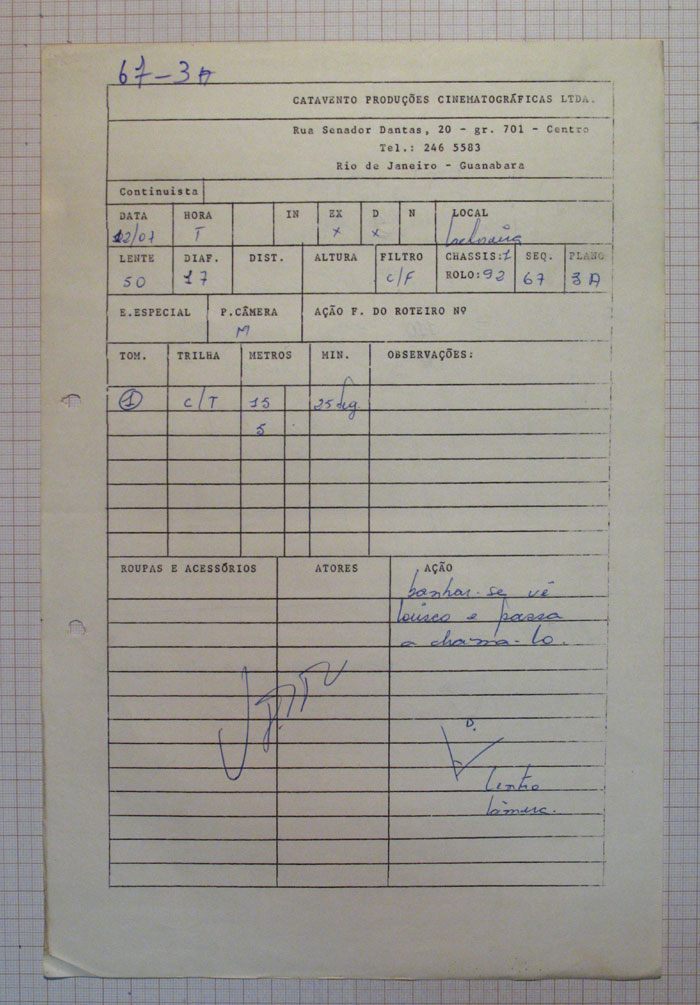 67-3A
CATAVENTO PRODUÇÕES CINEMATOGRÁFICAS LTDA.
Rua Senador Dantas, 20 - gr. 701 - Centro
Tel.: 246 5583
Rio de Janeiro - Guanabara
Continuista
DATA HORA IN EX D N LOCAL
12/01 T x x
LENTE DIAF. DIST. ALTURA FILTRO CHASSIS:1 SEQ. PLANO
50 17 C/F ROLO:92 67 3A
E.ESPECIAL P.CÂMERA AÇÃO F. DO ROTEIRO Nº
M
TOM. TRILHA METROS MIN. OBSERVAÇÕES:
1 C/T 15 25 seg.
5
ROUPAS E ACESSÓRIOS ATORES AÇÃO
banhar-se vê
e passa
a chama-lo.
D.